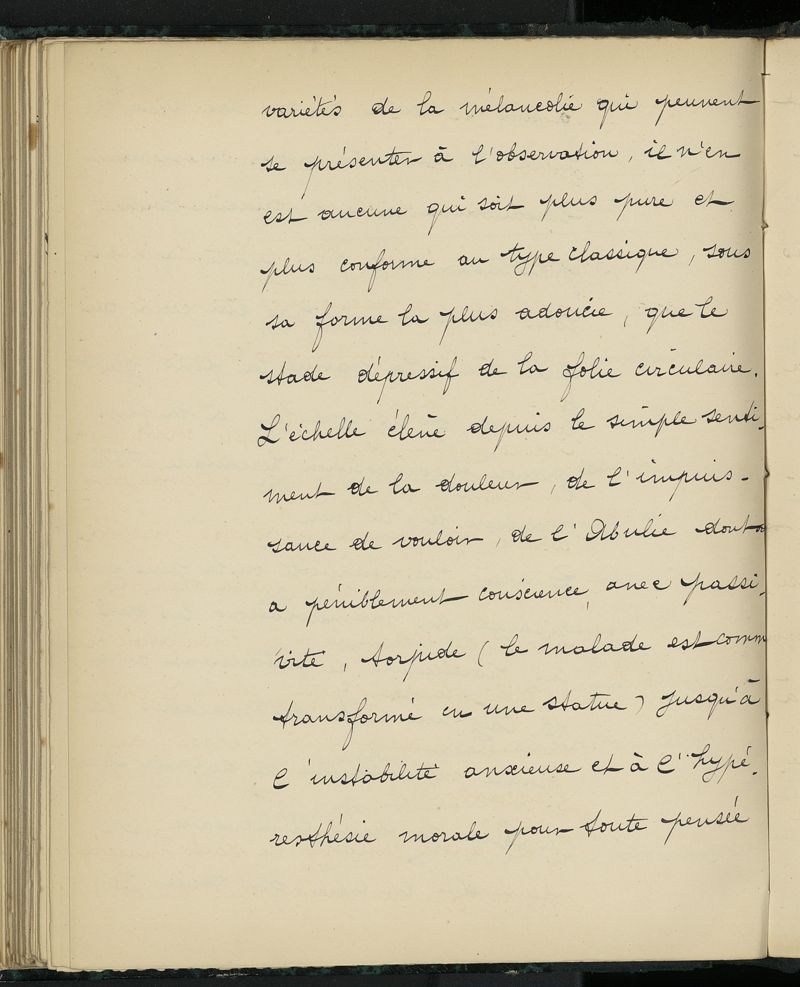 variétés de la mélancolie qui peuvent
se présenter à l'observation, il n'en
est aucune qui soit plus pure et
plus conforme au type classique, sous
sa forme la plus adoucie, que le
stade dépressif de la folie circulaire.
L'échelle élève depuis le simple senti-
ment de la douleur, de l'impuis-
sance de vouloir, de l'Abulie dont
a péniblement conscience, avec passi-
vité, torpide (le malade est comm
transformé en une statue) jusqu'à
l'instabilité anxieuse et à l'hypé-
resthésie morale pour toute pensée